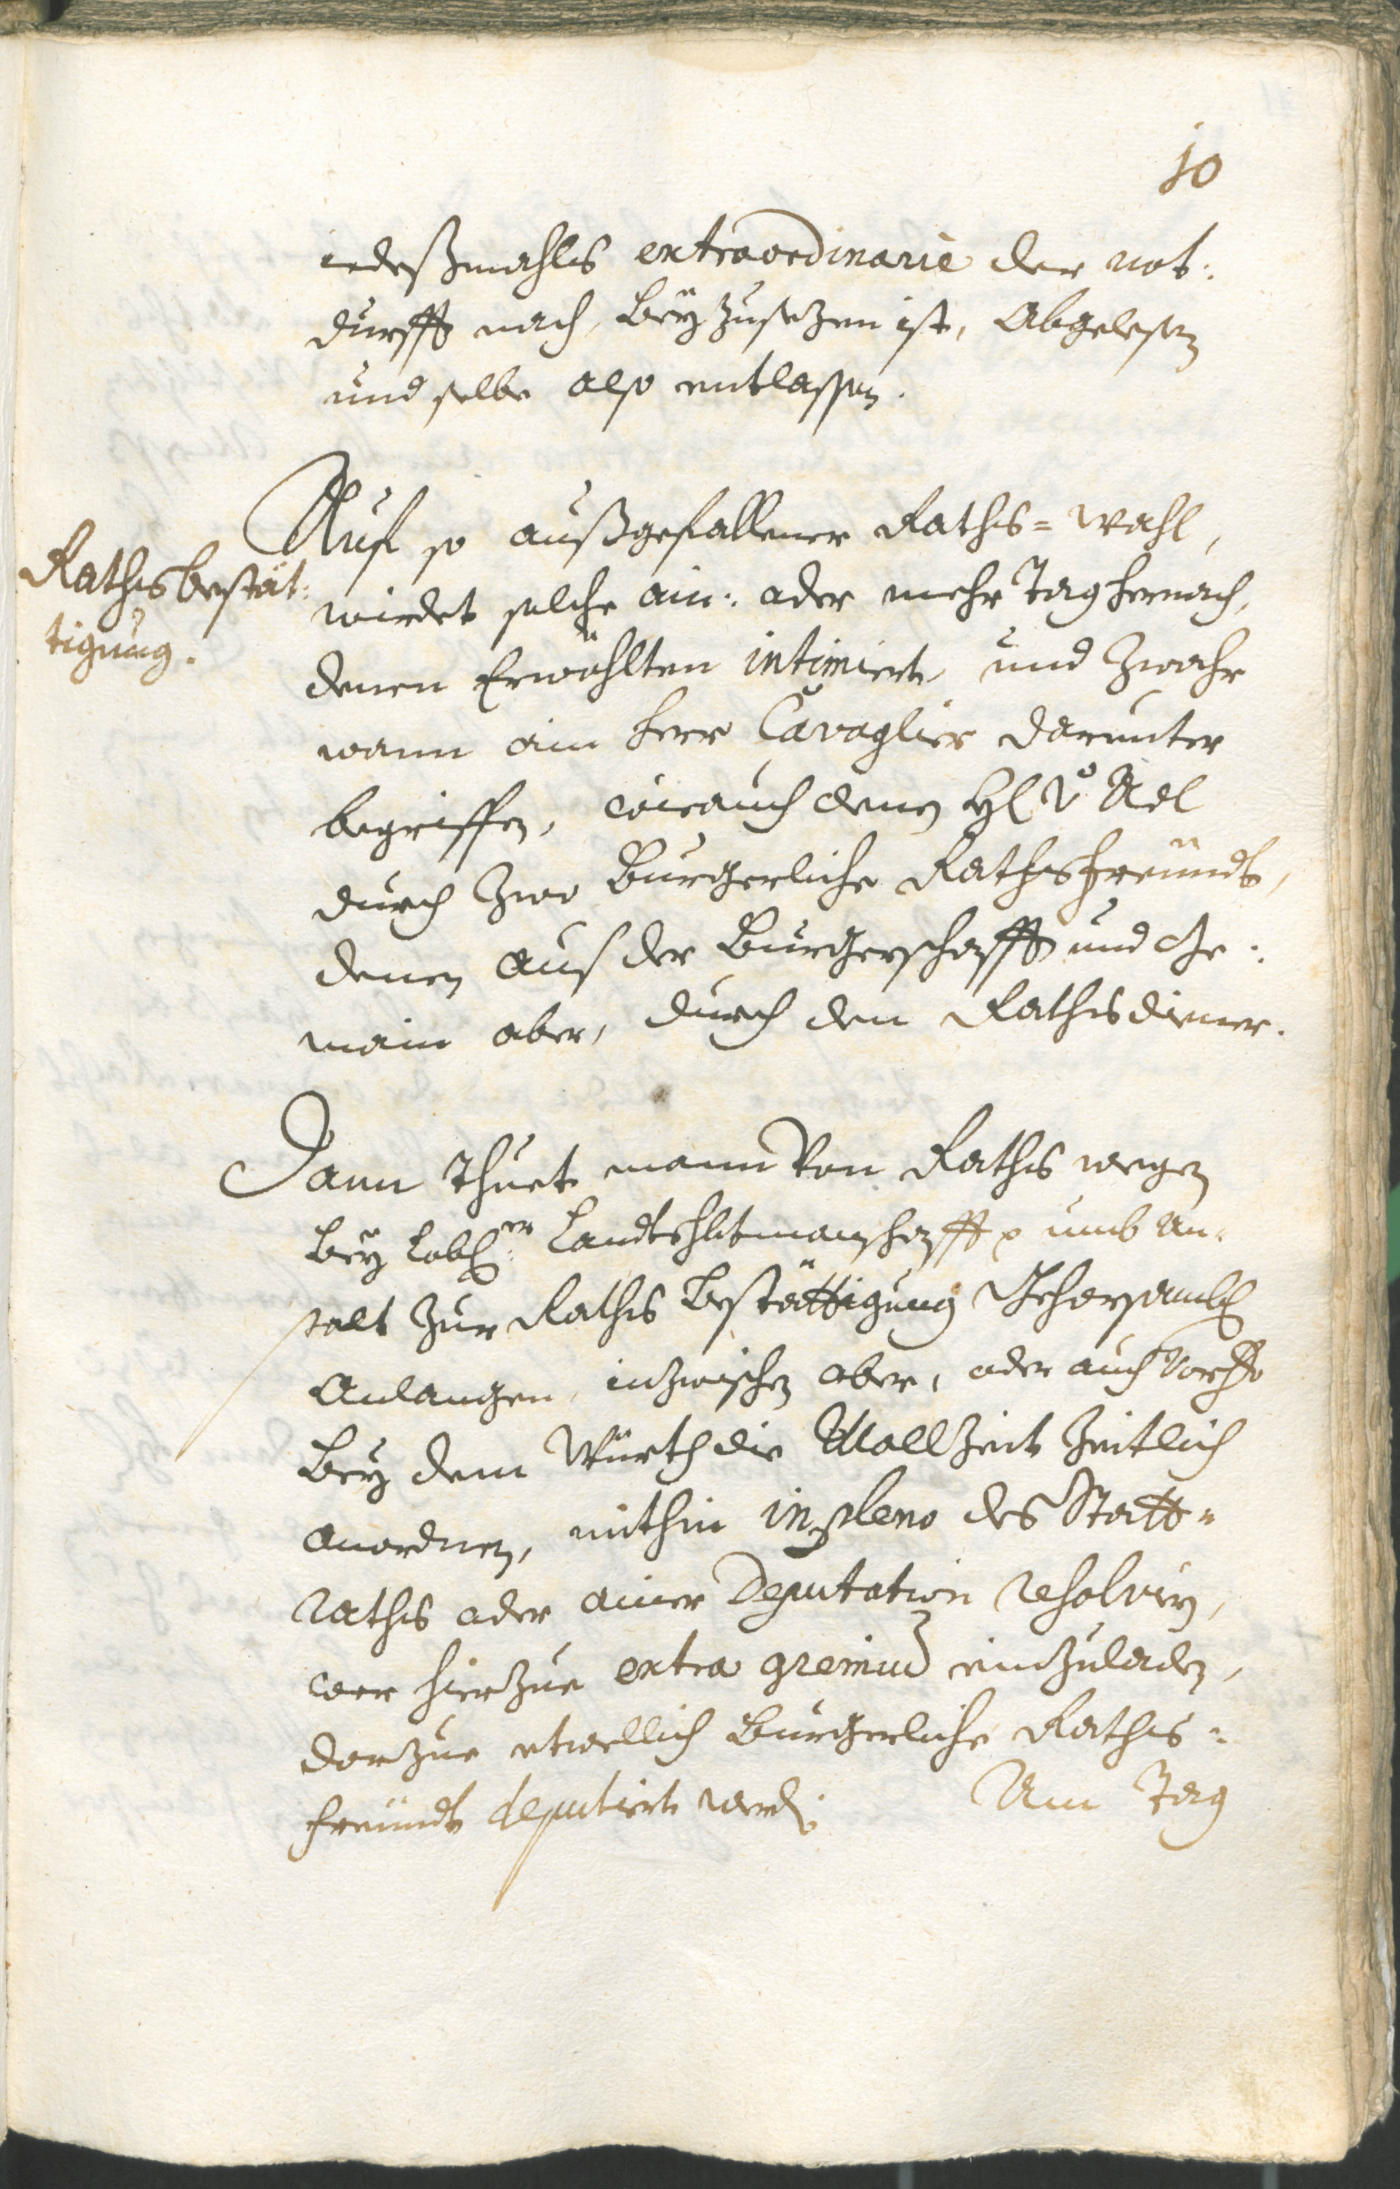 10
iedeßmahls extraordinarie der not:
durfft nach, beÿzusezen ist, abgelesen
und selbe also entlassen.
Auf so außgefallener Raths= wahl,
Rathsbestät:
tigung.
wirdet solche ain: oder mehr Tag hernach,
denen Erwöhlten intimiert, und zwahr
wann ain herr Cavaglier darunter
begriffen, wie auch denen H v Adl
durch zwo Burgerliche Rathsfreündt,
denen aus der Burgerschafft und Ge:
main aber, durch den Rathsdiener.
Dann thuet mann von Raths wegen
beÿ Lobl:er Landtshbtmanschafft umb An:
stalt zur Raths bestättigung gehorsambl
anlangen, inzwischen aber, oder auch vorhero
beÿ dem Würth die Mallzeit zeitlich
anordnen, mithin in pleno des Statt=
raths oder ainer Deputation resolvirn,
wer hierzue extra gremium einzuladen,
darzue etwellich burgerliche Raths=
freündt deputiert werden. Am Tag